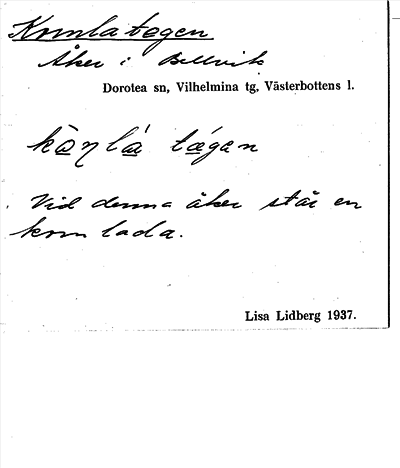 Kornlategen
Åker i Bellvik
Dorotea sn, Vilhelmina tg, Västerbottens l.
Vid denna åker står en
kornlada.
Lisa Lidberg 1937.